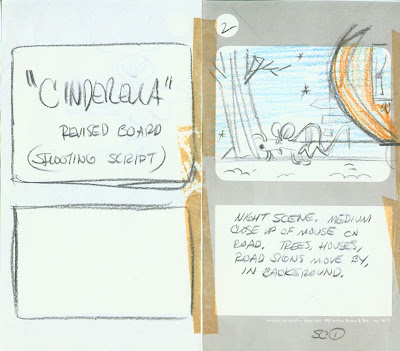 "CINDERELLA"
REVISED BOARD
(SHOOTING SCRIPT)
2
NIGHT SCENE. MEDIUM
CLOSE UP OF MOUSE ON
ROAD. TREES, HOUSES,
ROAD SIGNS MOVE BY,
IN BACKGROUND.
SC 1